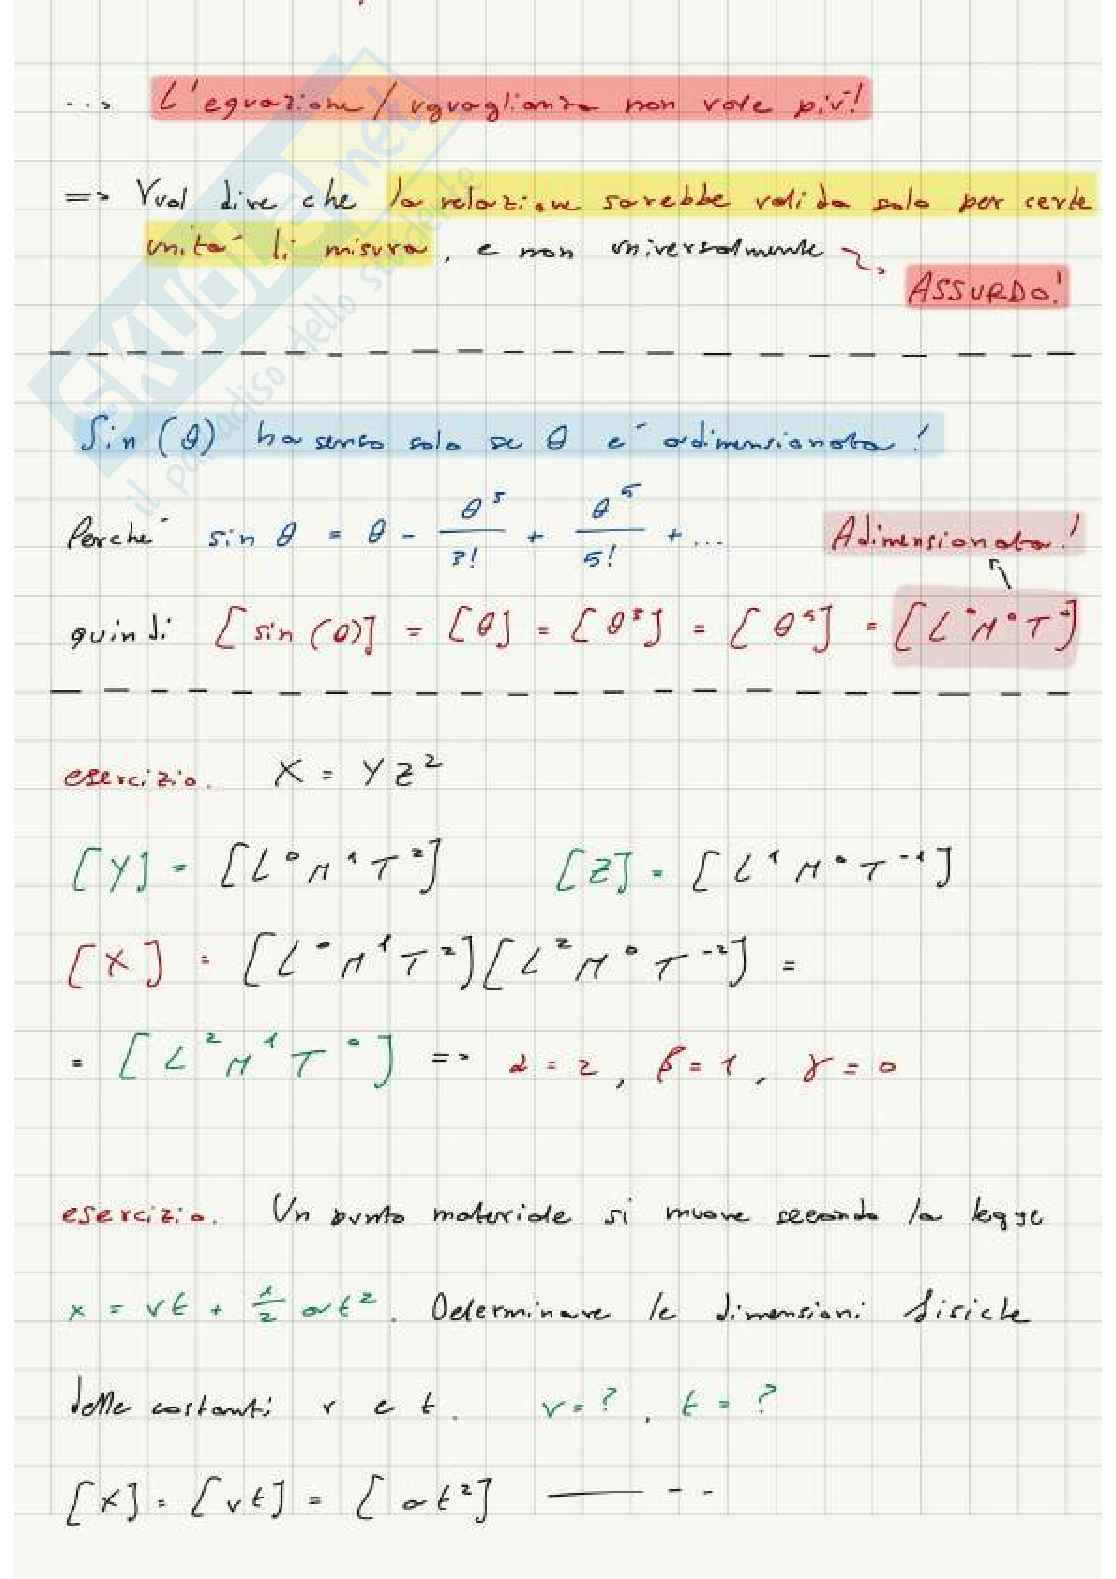 --> L'equazione/uguaglianza non vale più!
=> Vuol dire che la relazione sarebbe valida solo per certe
unità di misura, e non universalmente
ASSURDO!
Sin (θ) ha senso solo se θ è adimensionata!
Perché sin θ = θ - θ³/3! + θ⁵/5! + ... Adimensionata!
quindi [sin (θ)] = [θ] = [θ³] = [θ⁵] = [L°M°T°]
esercizio. X = YZ²
[Y] = [L⁰M¹T²] [Z] = [L¹M⁰T⁻¹]
[X] = [L⁰M¹T²][L²M⁰T⁻²] =
= [L²M¹T⁰] => α = 2, β = 1, γ = 0
esercizio. Un punto materiale si muove secondo la legge
x = vt + 1/2 at². Determinare le dimensioni fisiche
delle costanti v e t. v = ?, t = ?
[X] = [vt] = [at²] —— - -
SKUOLA.net
il paradiso dello studente